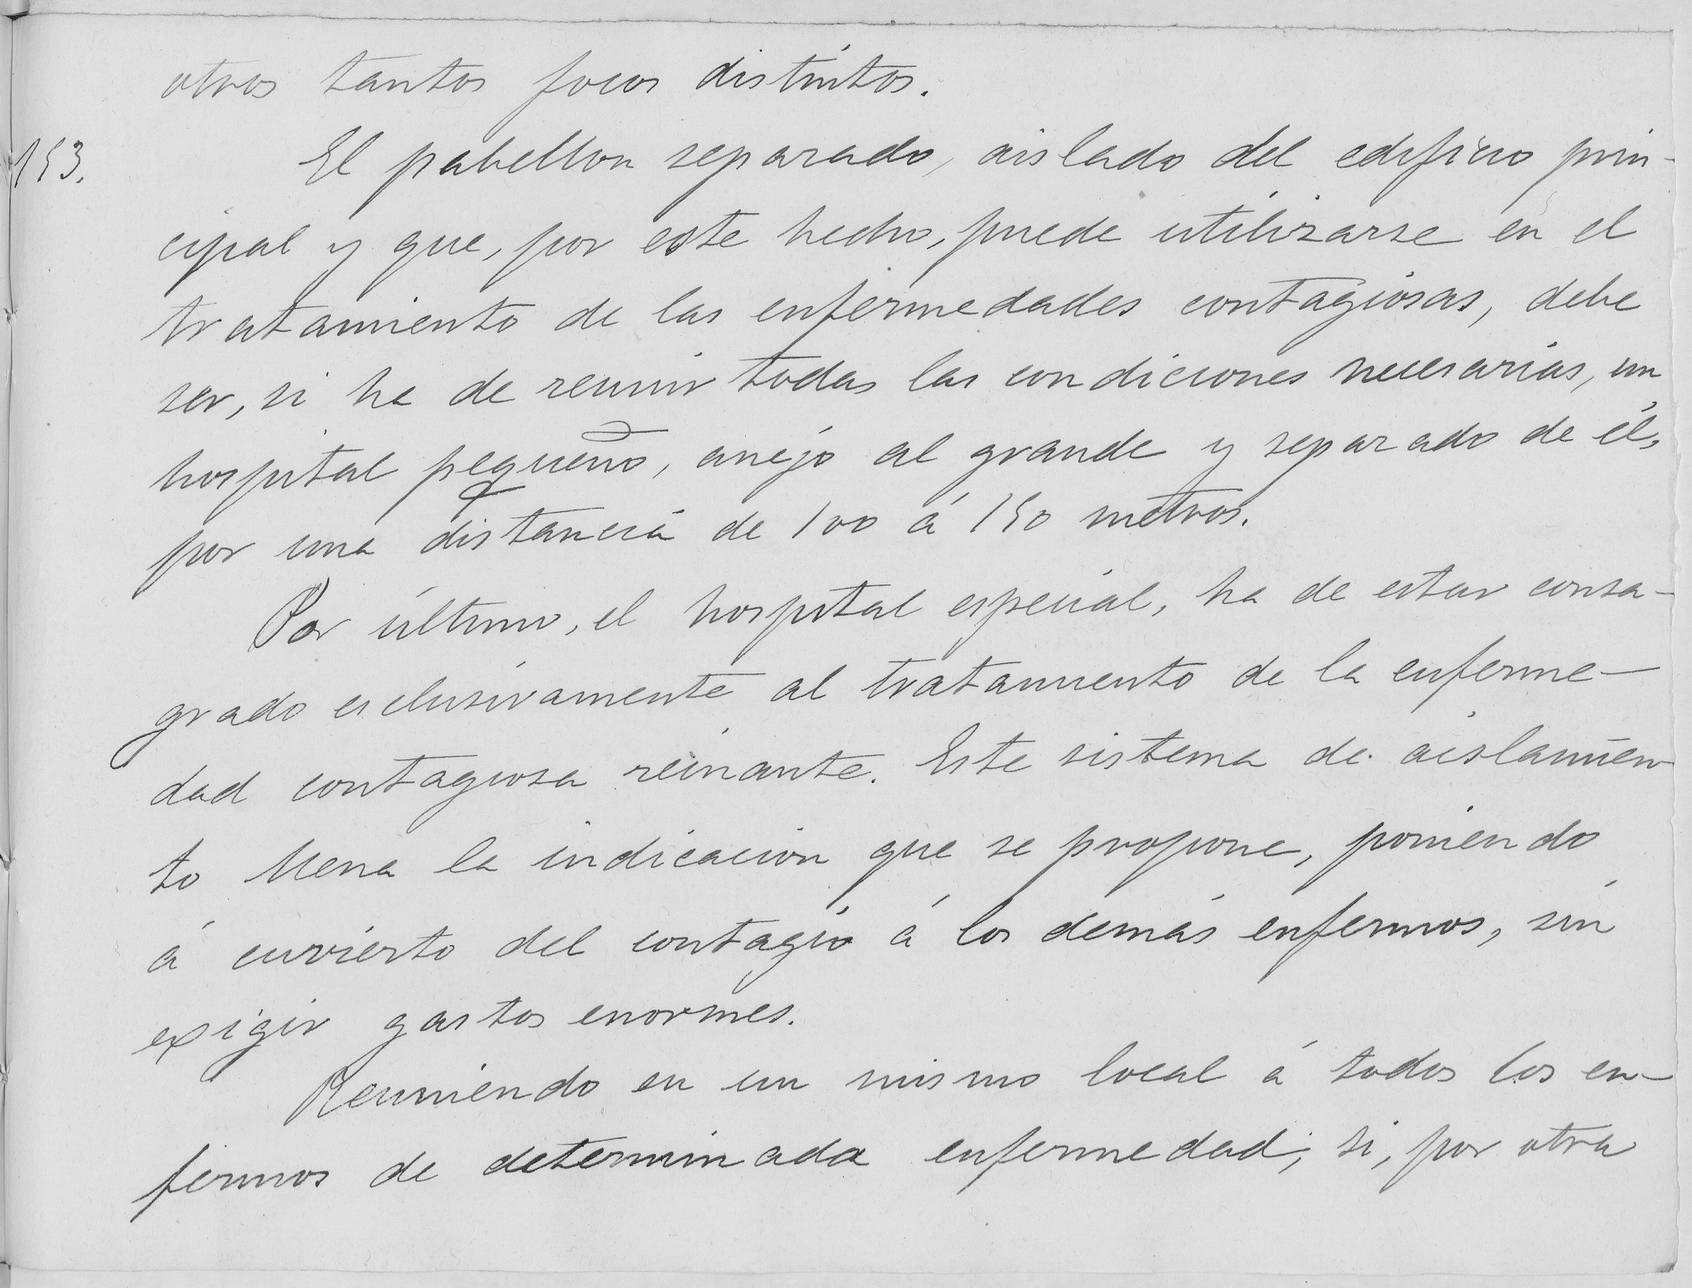 otros tantos focos distintos.
153.
El pabellon separado, aislado del edificio prin-
cipal y que, por este hecho, puede utilizarse en el
tratamiento de las enfermedades contagiosas, debe
ser, si ha de reunir todas las condiciones necesarias, un
hospital pequeño, anejo al grande y separado de él,
por una distancia de 100 á 150 metros.
Por último, el hospital especial, ha de estar consa-
grado esclusivamente al tratamiento de la enferme-
dad contagiosa reinante. Este sistema de aislamien-
to llena la indicacion que se propone, poniendo
á cuvierto del contagio á los demás enfermos, sin
exigir gastos enormes.
Reuniendo en un mismo local á todos los en-
fermos de determinada enfermedad; si, por otra